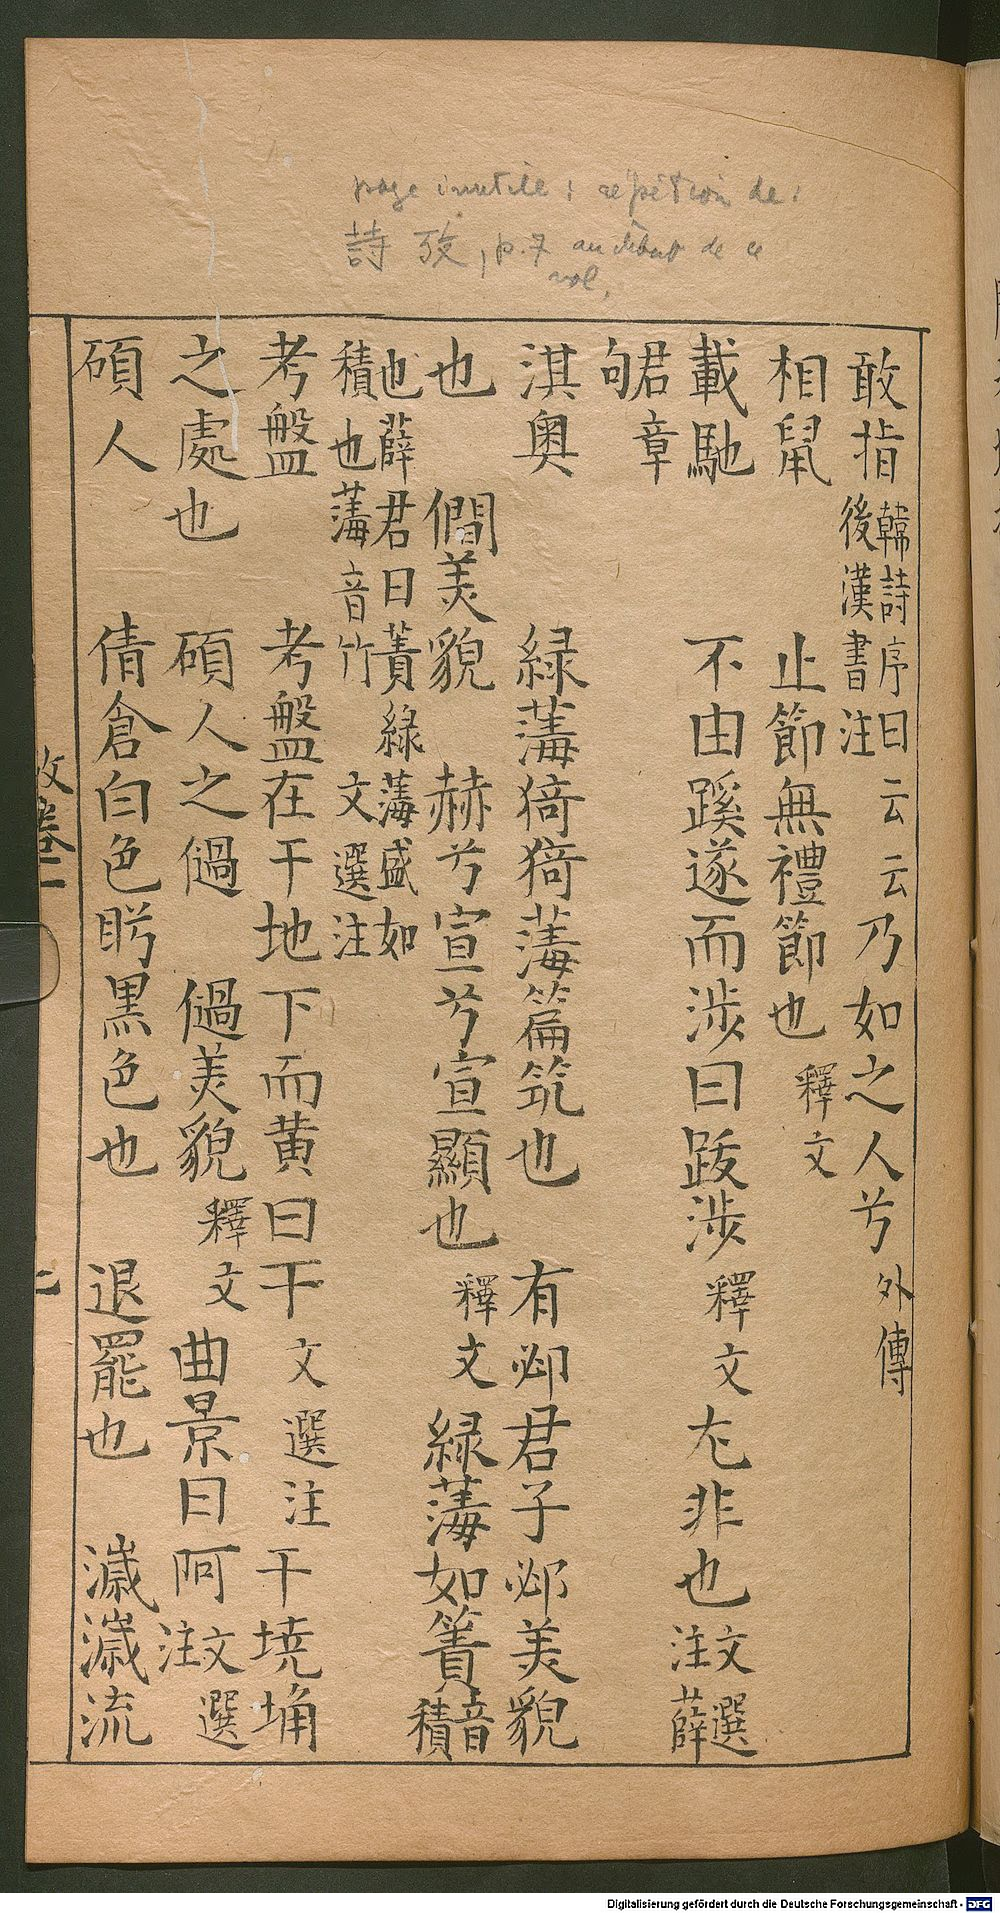 page inutile : répétition de :
詩攷, p. 7 au début de ce
vol.
敢指韓詩序曰云云後漢書注乃如之人兮外傳
相鼠 止節無禮節也釋文
載馳 不由蹊遂而涉曰跋涉釋文尢非也文選注薛
君章句
淇奧 緑𦺇猗猗𦺇篇筑也 有邲君子邲美貌
也 僩美貌 赫兮宣兮宣顯也釋文緑𦺇如簀音積
也薛君曰簀緑𦺇盛如積也𦺇音竹 文選注
考盤 考盤在干地下而黄曰干文選注干墝埆
之處也 碩人之 美貌釋文曲景曰阿文選注
碩人 倩倉白色盻黒色也 退罷也 濊濊流
Digitalisierung gefördert durch die Deutsche Forschungsgemeinschaft - DFG